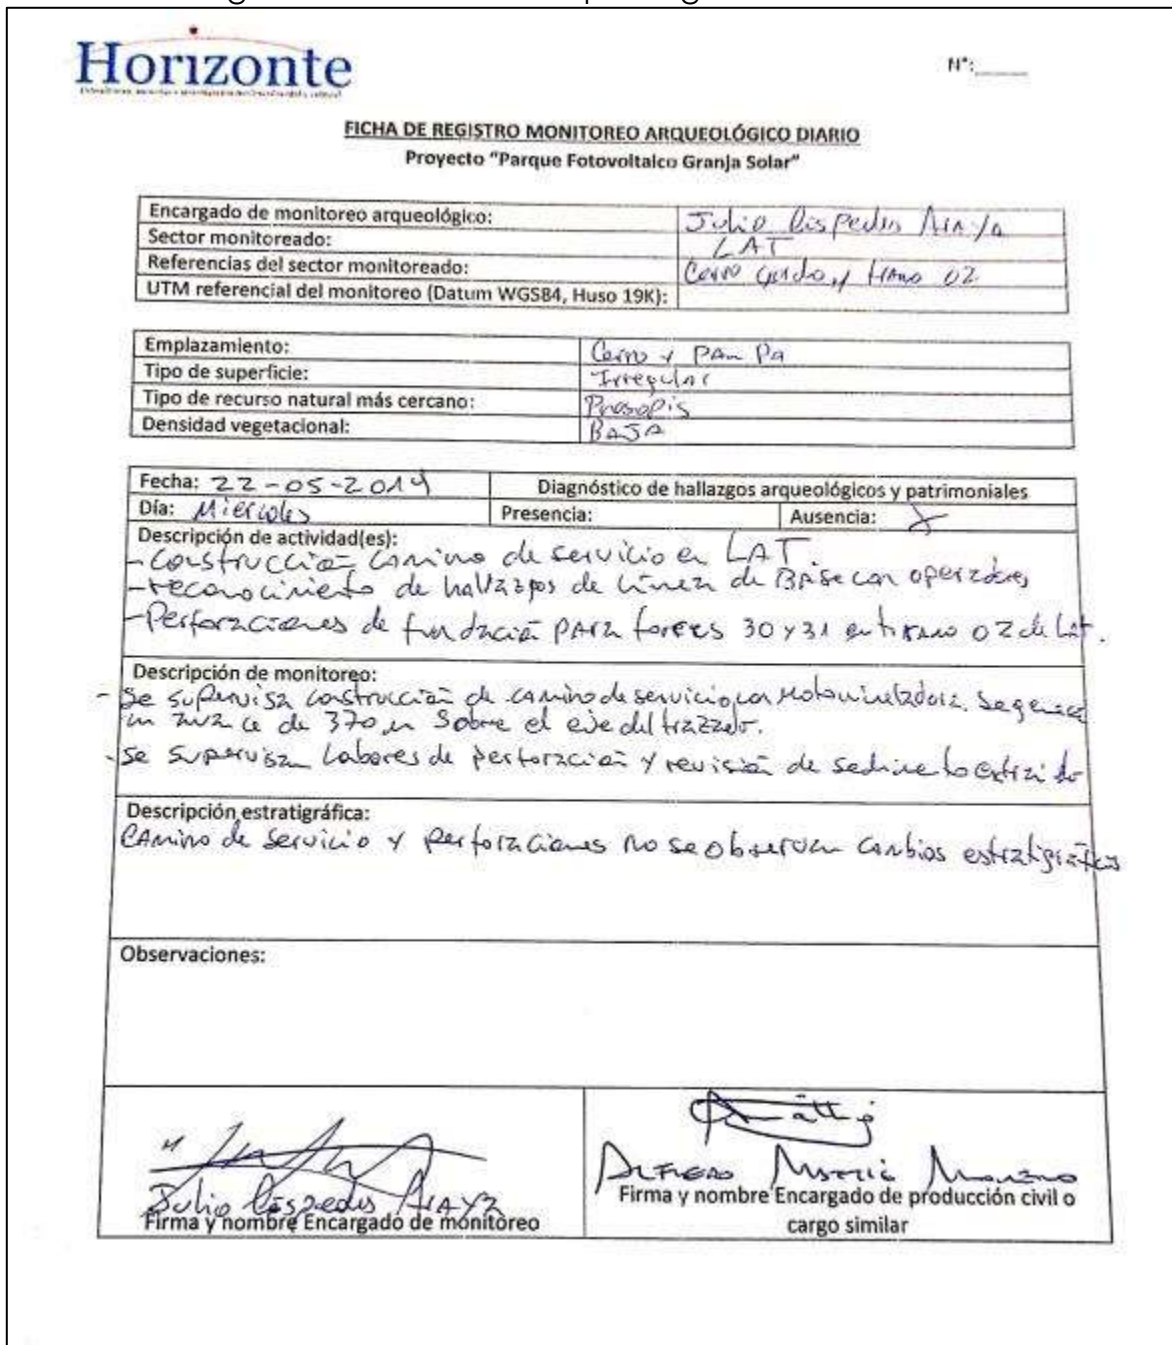 Horizonte
N°:
FICHA DE REGISTRO MONITOREO ARQUEOLÓGICO DIARIO
Proyecto "Parque Fotovoltaico Granja Solar"
Encargado de monitoreo arqueológico: Julio Céspedes Araya
Sector monitoreado: LAT
Referencias del sector monitoreado: Cerro gordo, y tramo 02
UTM referencial del monitoreo (Datum WGS84, Huso 19K):
Emplazamiento: Cerro y PAMPA
Tipo de superficie: Irregular
Tipo de recurso natural más cercano: Prosopis
Densidad vegetacional: BAJA
Fecha: 22-05-2019 Diagnóstico de hallazgos arqueológicos y patrimoniales
Día: Miercoles Presencia: Ausencia: X
Descripción de actividad(es):
- Construcción camino de servicio en LAT.
- reconocimiento de hallazgos de Línea de Base con operadores
- Perforaciones de fundación para torres 30 y 31 en tramo 02 de Lat.
Descripción de monitoreo:
- Se supervisa construcción de camino de servicio con Motoniveladora. Se genera
un avance de 370 m sobre el eje del trazado.
- Se supervisan Labores de perforación y revisión de sedimento extraido
Descripción estratigráfica:
Camino de servicio y perforaciones no se observan cambios estratigráficos
Observaciones:
Julio Céspedes Araya
Firma y nombre Encargado de monitoreo
Alfredo Moreno
Firma y nombre Encargado de producción civil o
cargo similar